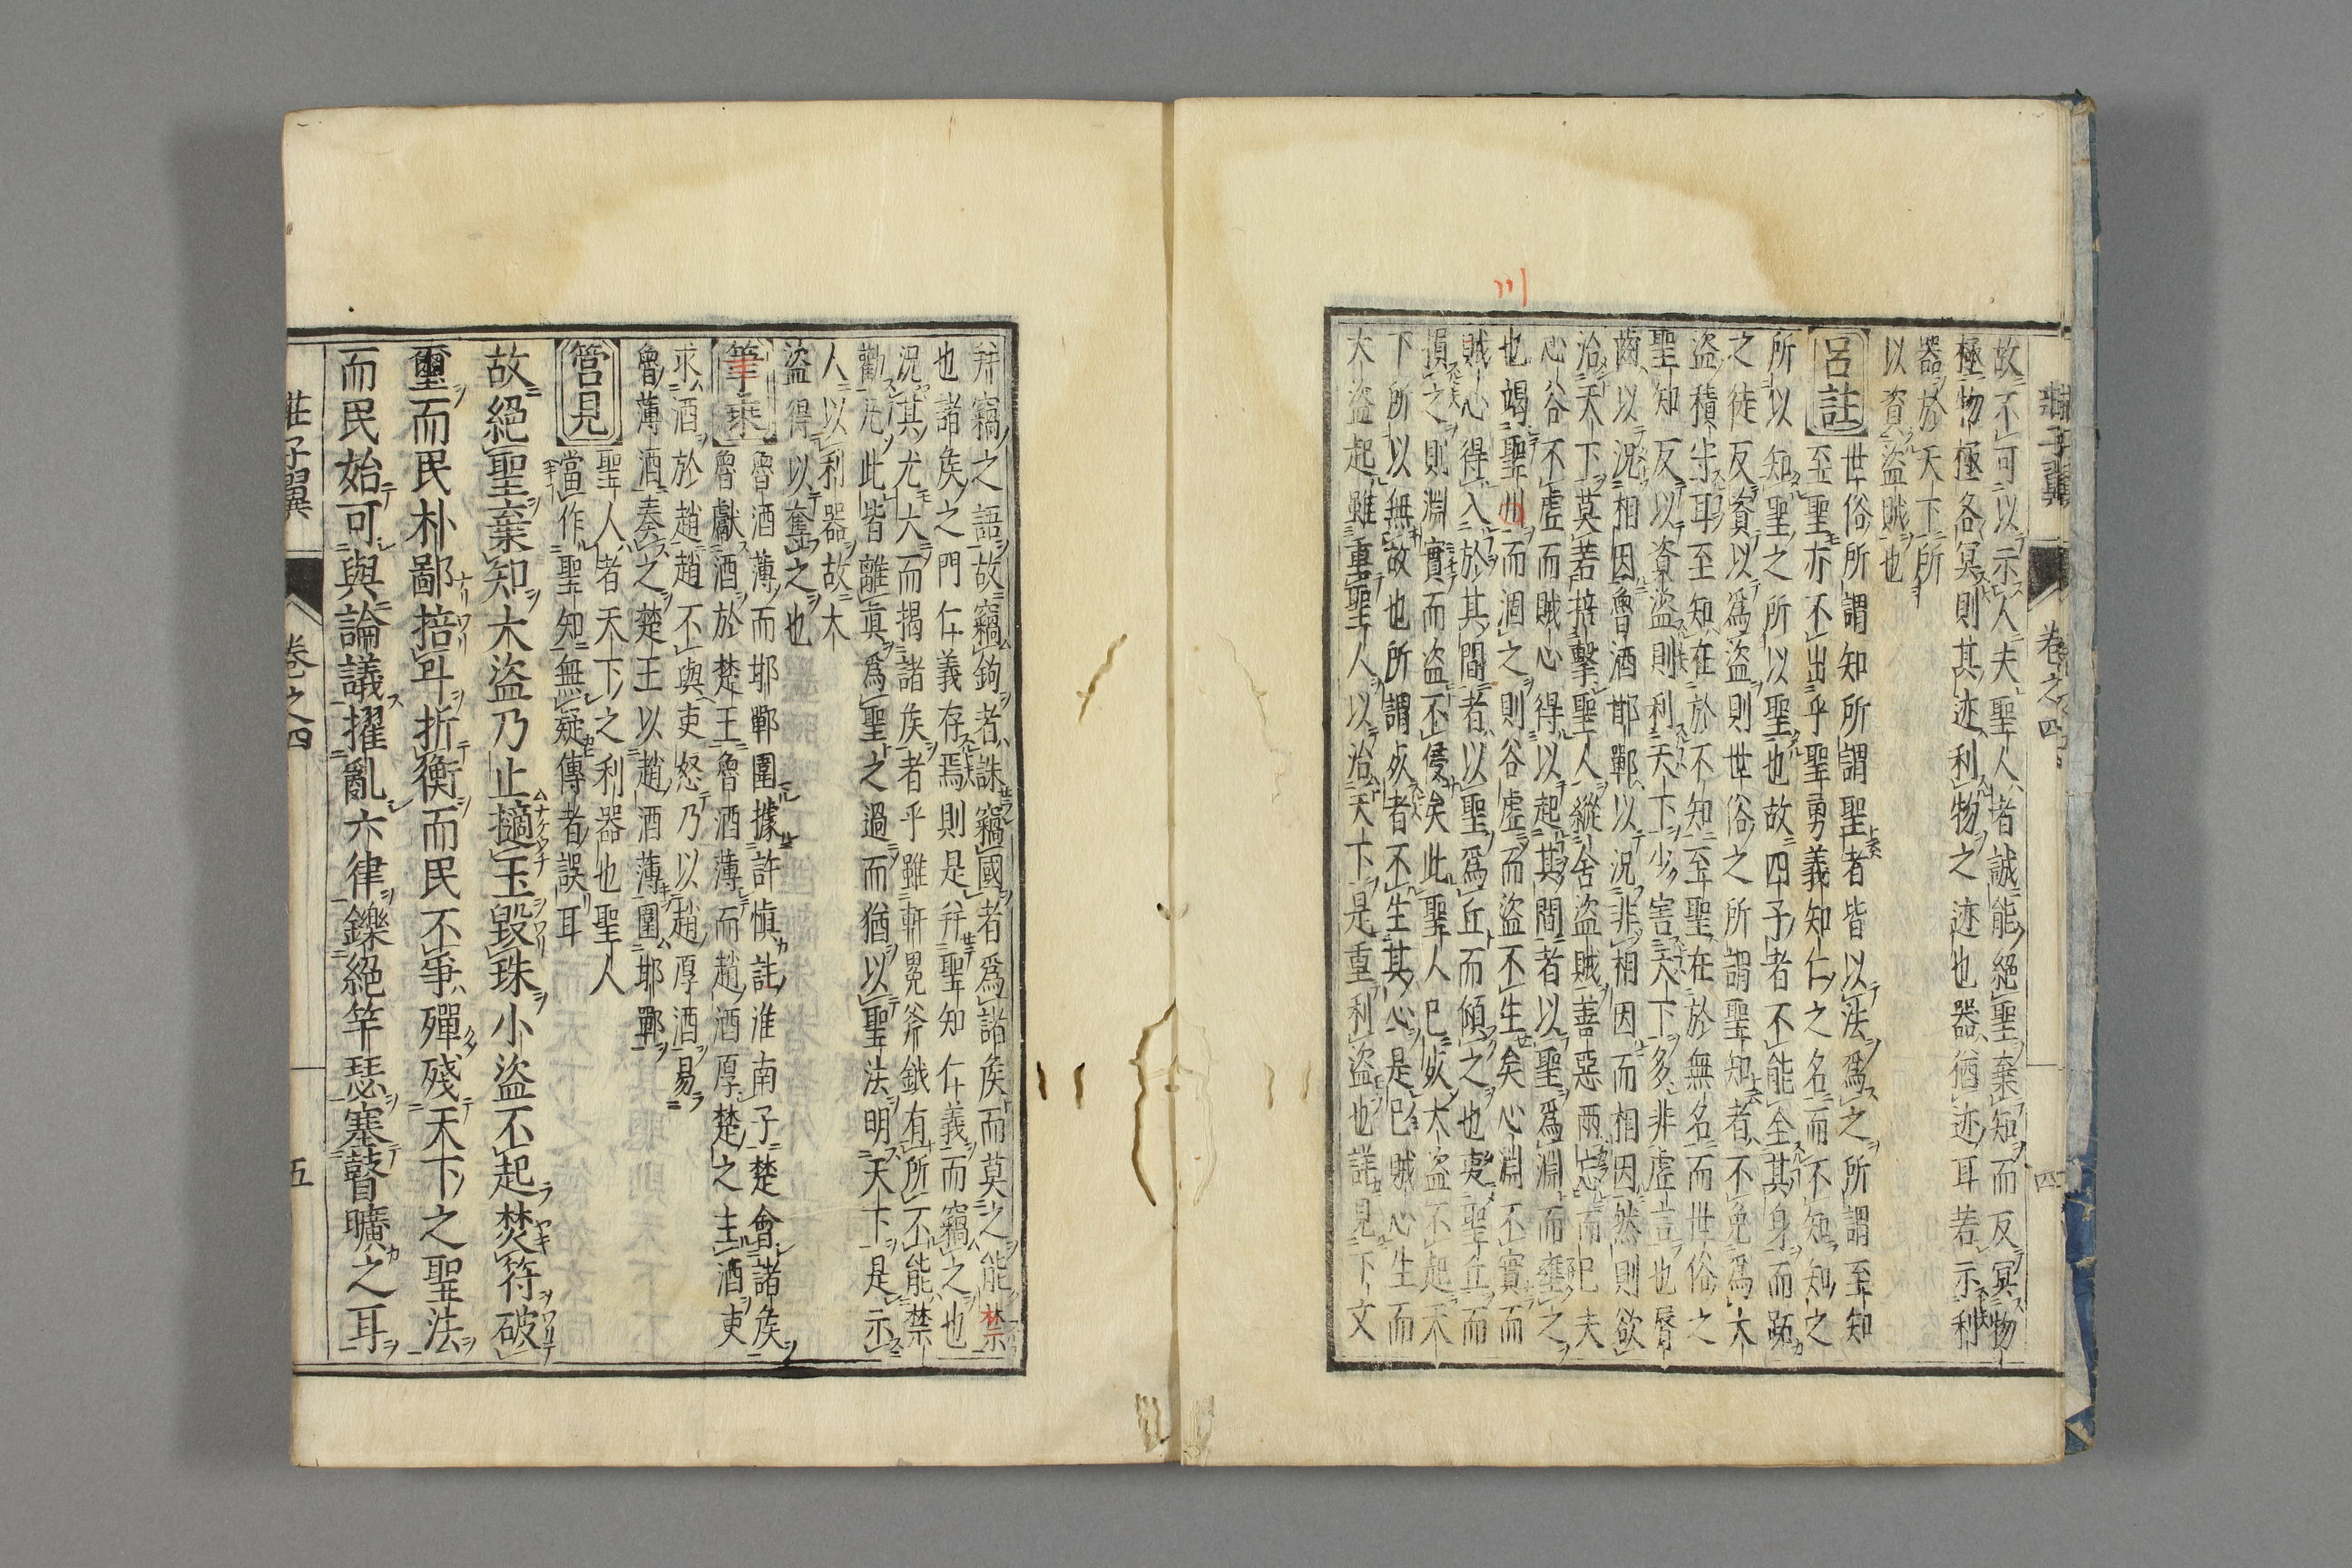 莊子翼 卷之四 四
故不可以示人夫聖人者誠能絕聖棄知而反冥物
極物極各冥則其迹利物之迹也器猶迹耳若示利
器於天下所
以資盜賊也
呂註
世俗所謂知所謂聖者皆以法爲之所謂至知
至聖亦不出乎聖勇義知仁之名而不知知之
所以知聖之所以聖也故四子者不能全其身而跖
之徒反資以爲盜則世俗之所謂聖知者不免爲大
盜積守耳至知在於不知至聖在於無名而世俗之
聖知反以資盜則利天下少害天下多非虛言也脣
齒以況相因魯酒邯鄲以況非相因而相因然則欲
治天下莫若掊擊聖人縱舍盜賊善惡兩忘而已夫
心谷不虛而賊心得以起其間者以聖爲淵而壅之
也竭聖川而涸之則谷虛而盜不生矣心淵不實而
賊心得入於其間者以聖爲丘而傾之也夷聖丘而
損之則淵實而盜不侵矣此聖人已死大盜不起天
下所以無故也所謂死者不生其心是已賊心生而
大盜起雖重聖人以治天下是重利盜也詳見下文
川
幷竊之語故竊鉤者誅竊國者爲諸矦而莫之能禁
也諸矦之門仁義存焉則是幷聖知仁義而竊之也
況其尤大而揭諸矦者乎雖軒冕斧鉞有所不能禁
勸沮此皆離眞爲聖之過而猶以聖法明天下是示
人以利器故大
盜得以奪之也
筆乘
魯酒薄而邯鄲圍據許愼註淮南子楚會諸矦
魯獻酒於楚王魯酒薄而趙酒厚楚之主酒吏
求酒於趙趙不與吏怒乃以趙厚酒易
魯薄酒奏之楚王以趙酒薄圍邯鄲
筦見
聖人者天下之利器也聖人
當作聖知無疑傳者誤耳
故絕聖棄知大盜乃止擿玉毀珠小盜不起焚符破
璽而民朴鄙掊斗折衡而民不爭殫殘天下之聖法
而民始可與論議擢亂六律鑠絕竽瑟塞瞽曠之耳
莊子翼 卷之四 五